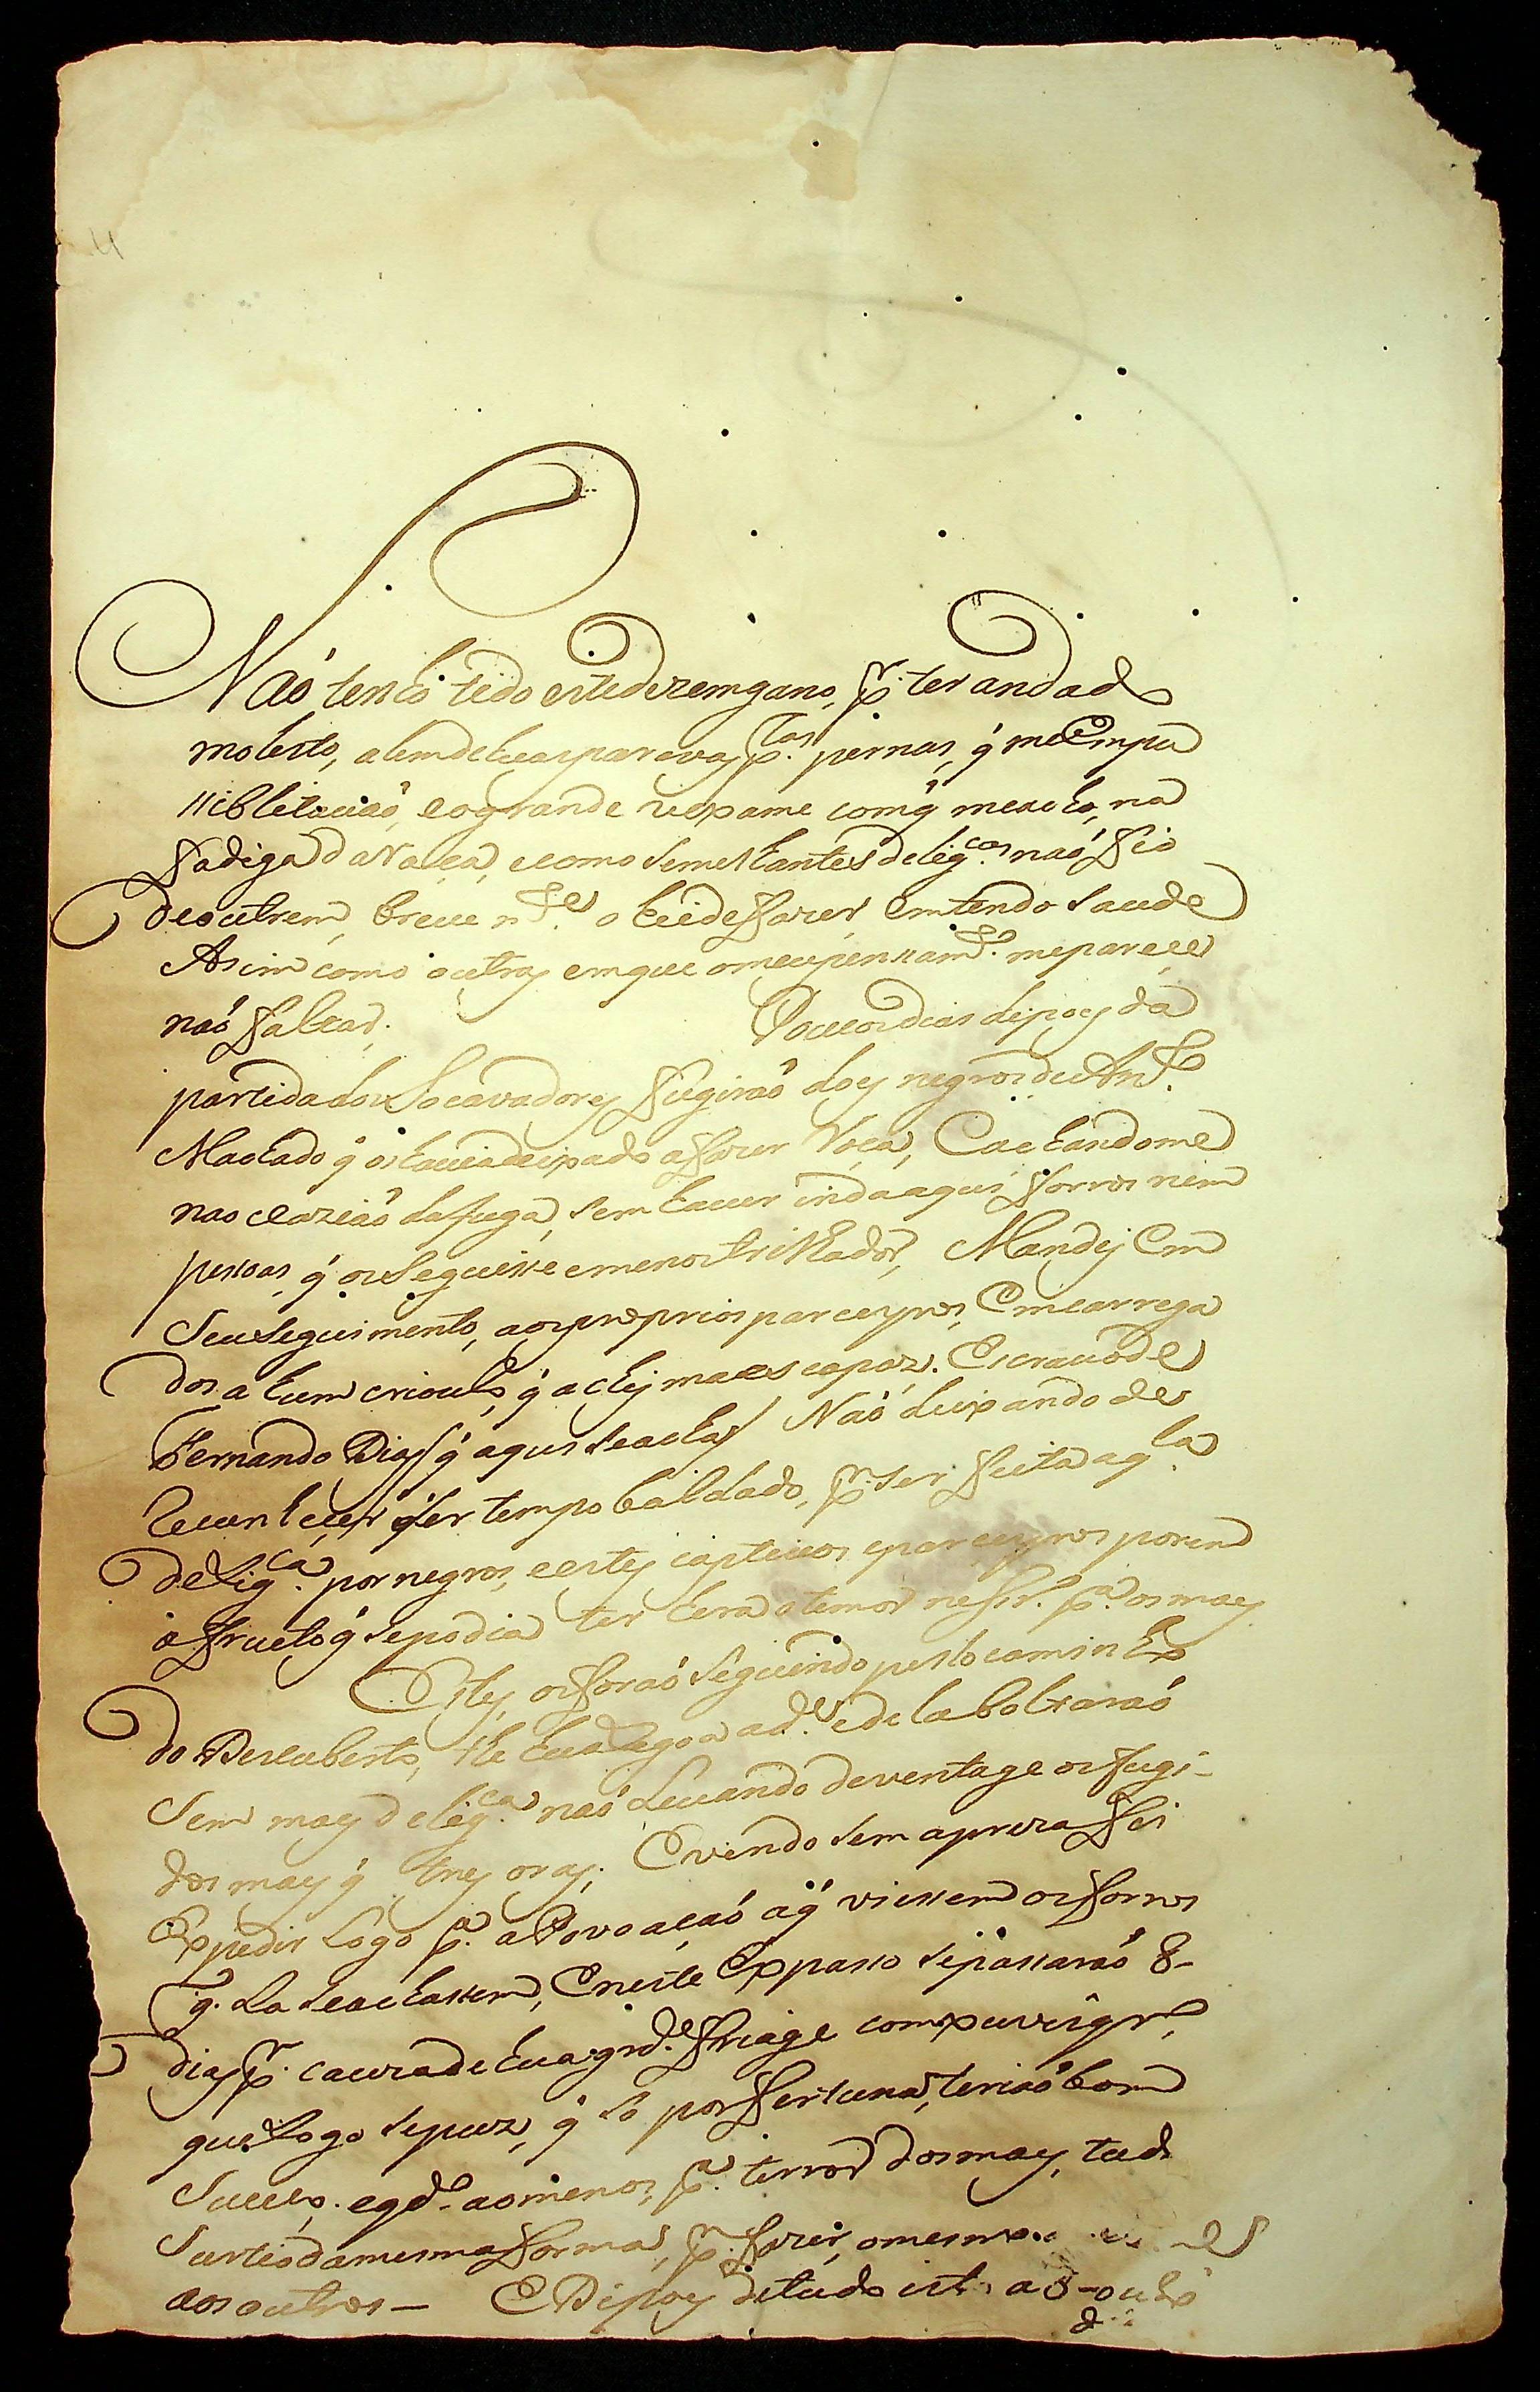 Naó tenho tido este dezemgano, p.r ter andad
molesto, alem de huas parevas p.las pernas, q̃ me empu
ssibletauaó, e o grande vexame com q̃ me acho, na
Fadiga da Rossa, e como semelhantes delig.cas naó fio
de outrem, breue m.te o hei de fazer, em tendo saude
Asim como outras em que o meu penssam.to me parece
naó faltar. Poucos dias depoes da
partida dos Socavadores fugiraó does negros de Ant.o
Machado q̃ os hauia deixado a fazer Roça, e achandome
na ocaziaó da fuga, sem hauer inda aqui forros nem
pessoas q̃ os seguisse e menos trilhador, Mandej em
seu seguimento, aos proprios parceyros, emcarrega
dos a hum crioulo, q̃ achej maes capaz. Escrauo de
Fernando Dias / q̃ aqui se acha / Naó deixando de
Reconhecer q̃ ser tempo baldado, p.r ser feita aq.la
delig.ca por negros, e estes captiuos e parceyros porem
o fructo q̃ se podia ter hera o temor p.a os maes
Estes os foraó seguindo pello caminho
do Descuberto, the hua Lagoa ad.e e de la boltaraó
sem maes delig.ca naó Leuando de ventage os fugi-
dos maes q̃ tres oras; E vendo sem a preza fis
Expedir Logo p.a a Povoaçaó a q̃ viessem os forros
q̃. la se achassem, e neste Expasso se passaraó 8-
dias p.r cauza de hua grd.e friage com xuvisqr.o
que Logo se pux, q̃ so por fortuna, teriaó bom
sucesso. e q.do ao menos, p.a terror dos maes, tudo
surtio da mesma forma, p.r fazer o mesmo
aos outros — E Depoes de tudo isto a 3 - outo
d